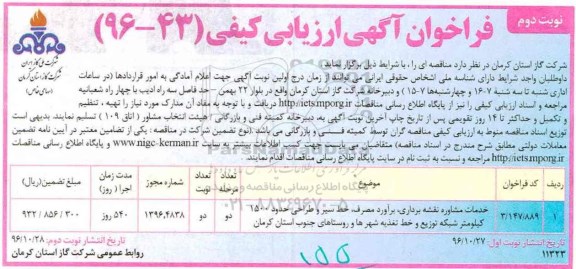 نوبت دوم
فراخوان آگهی ارزیابی کیفی (۴۳-۹۶)
شرکت ملی گاز ایران
شرکت گاز استان کرمان
(سهامی خاص)
شرکت گاز استان کرمان در نظر دارد مناقصه ای را ، با شرایط ذیل برگزار نماید.
داوطلبان واجد شرایط دارای شناسه ملی اشخاص حقوقی ایرانی می توانند از زمان درج اولین نوبت آگهی جهت اعلام آمادگی به امور قراردادها (در ساعات
اداری شنبه تا سه شنبه ۱۶-۷ و چهارشنبه‌ها ۱۵-۷) و دبیرخانه شرکت گاز استان کرمان واقع در بلوار ۲۲ بهمن – حد فاصل سه راه ادیب با چهار راه شعبانیه
مراجعه و اسناد ارزیابی کیفی را نیز از پایگاه اطلاع رسانی مناقصات http://iets.mporg.ir دریافت و با توجه به مفاد آن مدارک مورد نیاز را تهیه ، تنظیم
و تکمیل و حداکثر تا ۱۴ روز تقویمی پس از تاریخ چاپ آخرین نوبت آگهی به دبیرخانه کمیته فنی و بازرگانی / هیئت انتخاب مشاور (اتاق ۱۰۹ ) تسلیم نمایند. بدیهی است
توزیع اسناد مناقصه منوط به ارزیابی کیفی مناقصه گران توسط کمیته فنی و بازرگانی می باشد. (نوع تضمین شرکت در مناقصه: یکی از تضامین معتبر در آیین نامه تضمین
معاملات دولتی مطابق شرح مندرج در اسناد مناقصه) متقاضیان می بایست جهت کسب اطلاعات بیشتر به سایت www.nigc-kerman.ir و
http://iets.mporg.ir مراجعه و نسبت به ثبت نام در سایت پایگاه اطلاع رسانی مناقصات اقدام نمایند.
ردیف | کد فراخوان | موضوع | تعداد مرحله | تعداد نوبت | شماره مجوز | مدت زمان اجرا ( روز) | مبلغ تضمین(ریال)
۱ | ۳/۱۴۷/۸۸۹ | خدمات مشاوره نقشه برداری، برآورد مصرف، خط سیر و طراحی حدود ۱۵۰۰ کیلومتر شبکه توزیع و خط تغذیه شهر ها و روستاهای جنوب استان کرمان | دو | دو | ۱۳۹۶,۴۸۳۸ | ۵۴۰ روز | ۹۳۲ / ۸۵۶ / ۳۰۰
تاریخ انتشار نوبت اول: ۹۶/۱۰/۲۷
تاریخ انتشار نوبت دوم: ۹۶/۱۰/۲۸
۱۱۳۲۳
روابط عمومی شرکت گاز استان کرمان
پایگاه اطلاع رسانی مناقصه و مزایده
۰۲۱-۸۸۳۴۹۶۷۰-۵